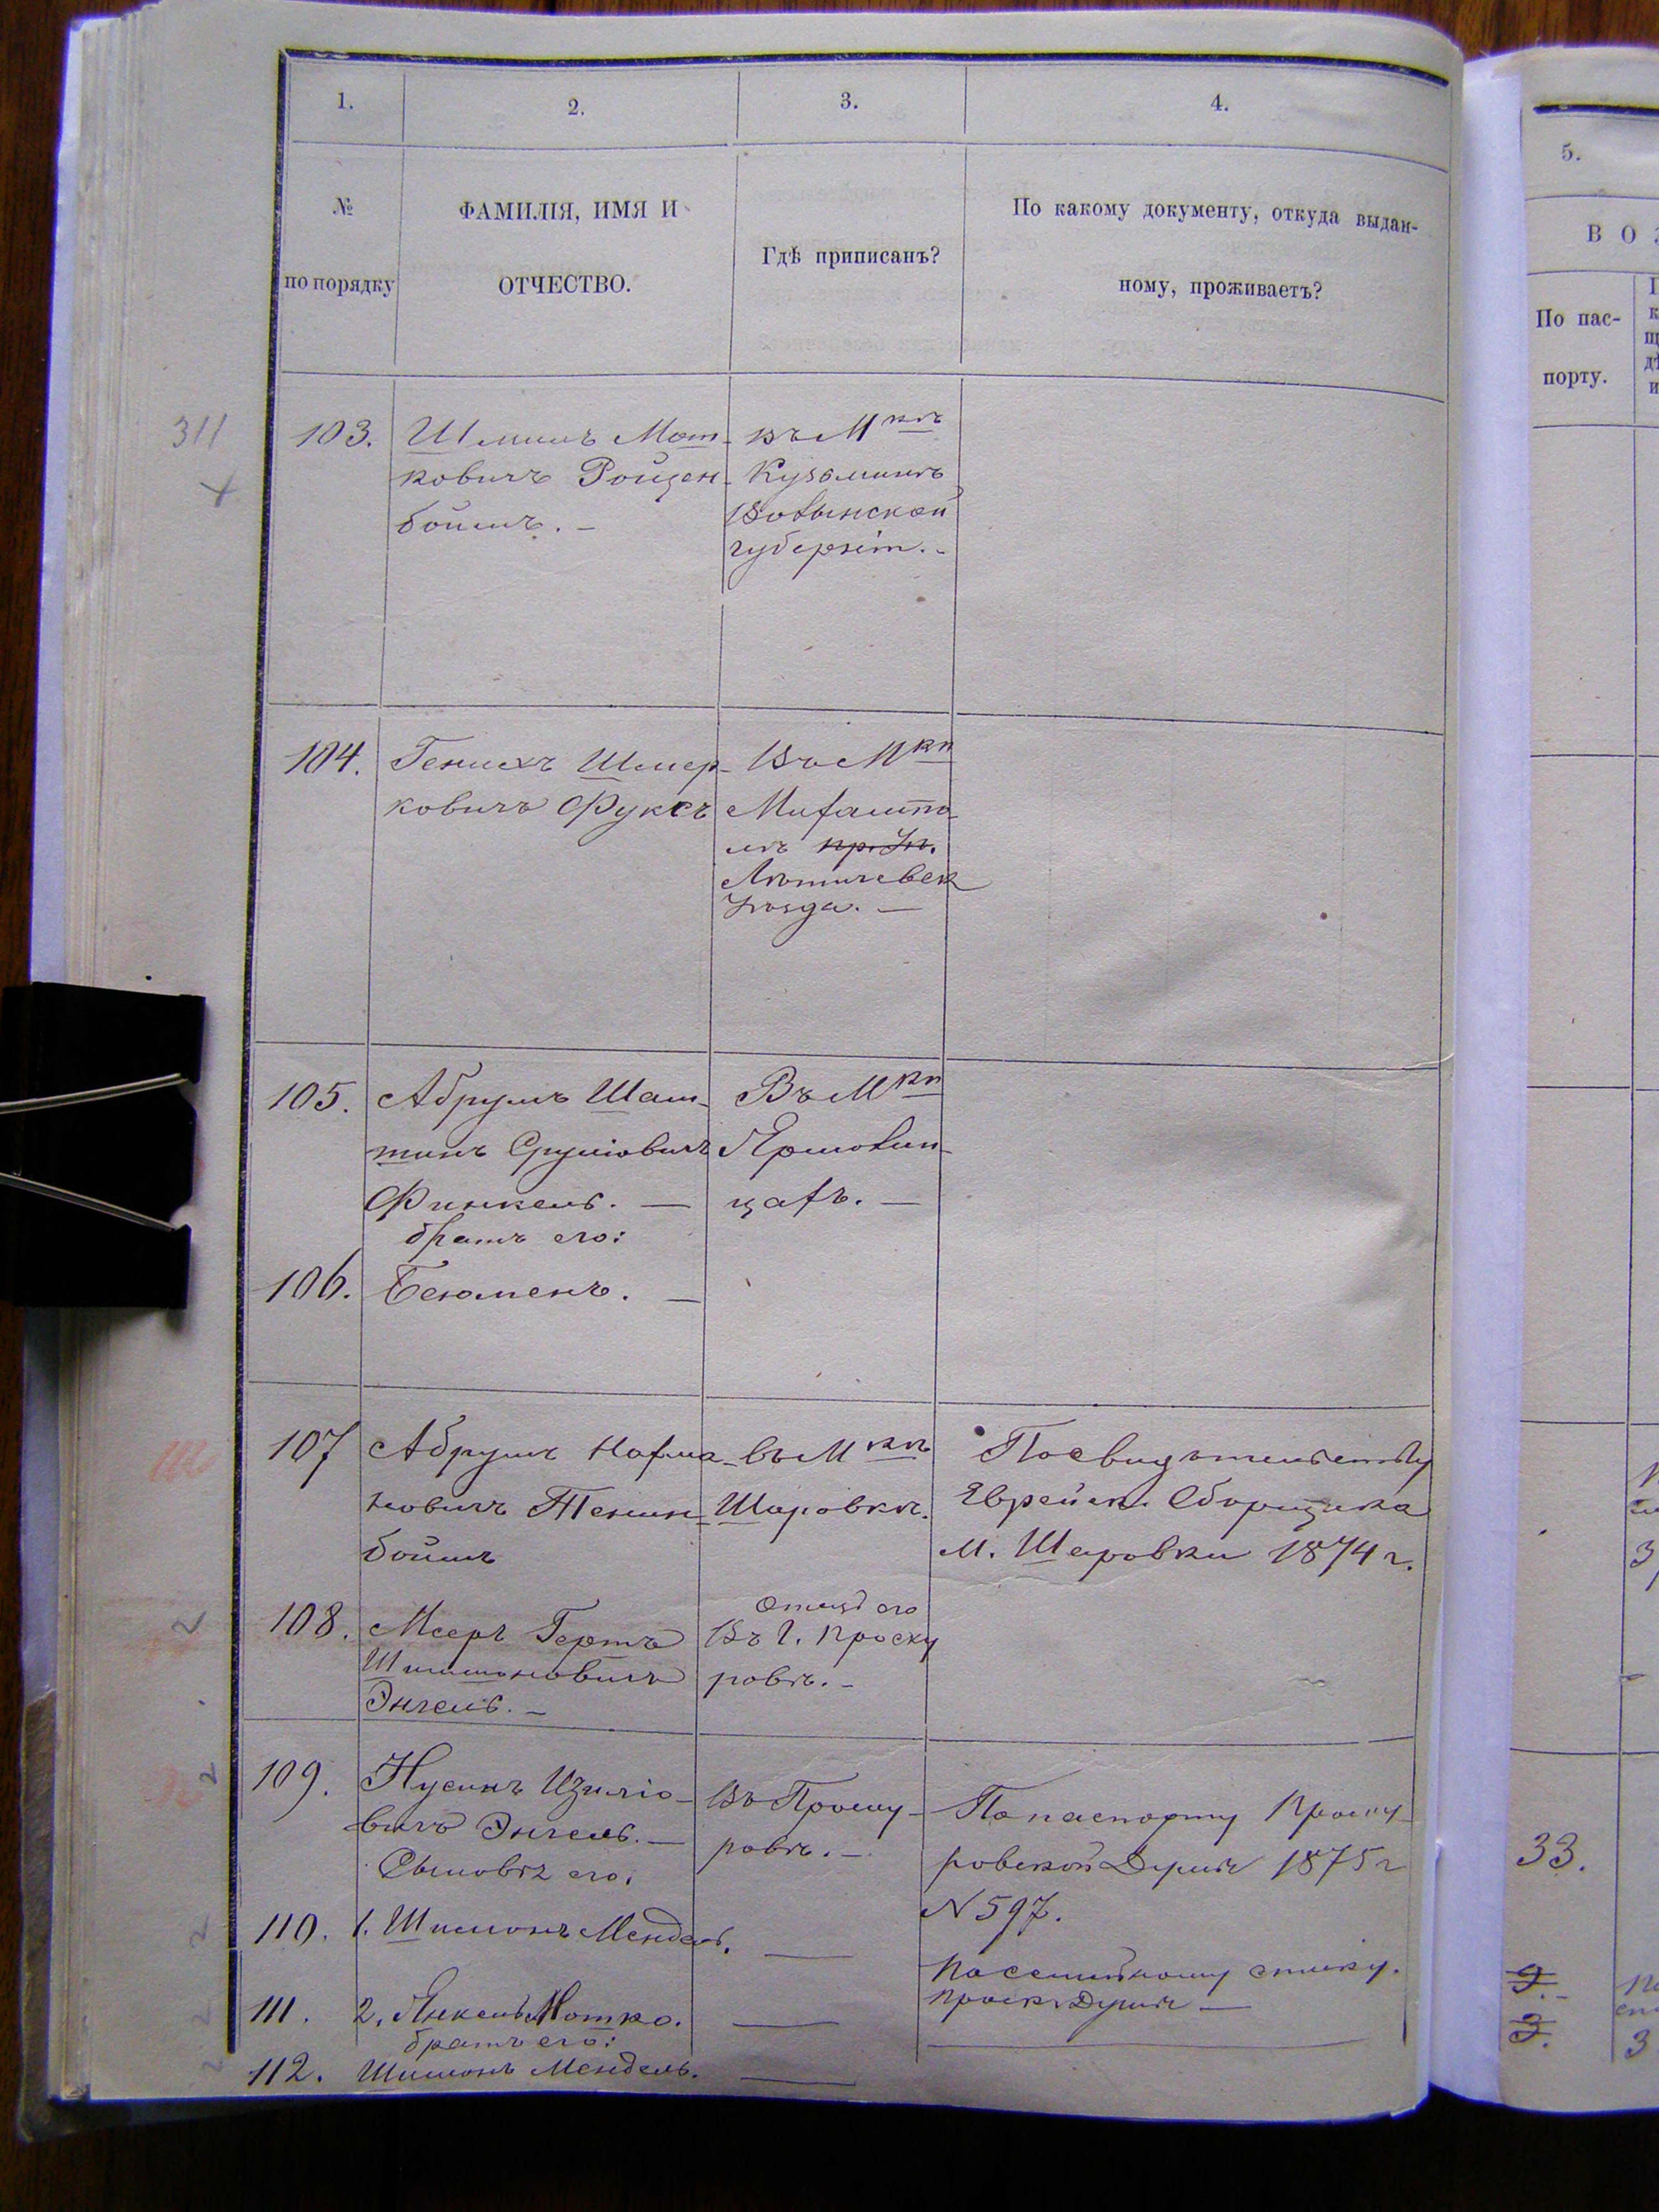 1.
2.
3.
4.
5.
№
по порядку
ФАМИЛІЯ, ИМЯ И
ОТЧЕСТВО.
Гдѣ приписанъ?
По какому документу, откуда выдан-
ному, проживаетъ?
В О З
По пас-
порту.
311
103.
Шлиимъ Мот-
ковичъ Ройзен-
боимъ. -
въ Мкѣ
Кузьминѣ
Волынской
губерніи. -
104.
Генихъ Шмер-
ковичъ Фуксъ
Въ Мкѣ
Михалпо-
лѣ
Лѣтичевск
Уѣзда. —
105.
Абрумъ Шам-
шинъ Сруліовичъ
Финкель. —
братъ его:
Въ Мкѣ
Ярмолин-
цахъ. —
106.
Бенюменъ. —
107
Абрумъ Нахма-
новичъ Тенин-
боимъ
въ Мкѣ
Шаровкѣ.
По свидѣтельству
Еврейск. Сборщика
м. Шаровки 1874 г.
2
108.
Мееръ Гершъ
Шимшоновичъ
Энгель. -
отецъ его
Въ г. Проску
ровѣ. -
2
109.
Нусинъ Изиліо-
вичъ Энгель. —
Сыновѣ его:
Въ Проску-
ровѣ. -
По паспорту Проску-
ровской Думы 1875 г
№ 597.
33.
2
110.
1. Шимонъ Мендель.
—
По семейному списку.
Проск. Думы —
2
111.
2. Янкель Мотко.
—
братъ его:
2
112.
Шимонъ Мендель.
—
3.
3